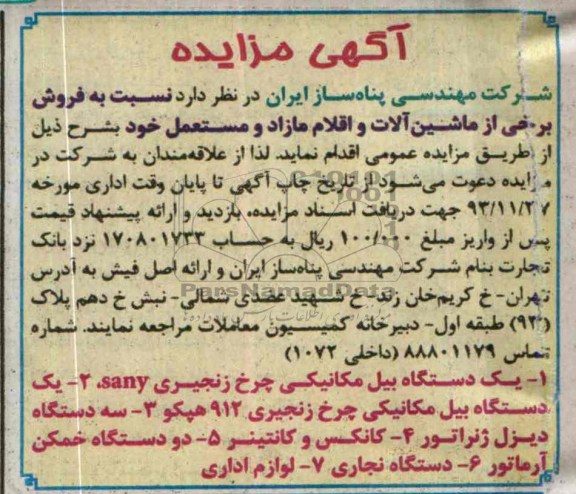 آگهی مزایده
شرکت مهندسی پناه‌ساز ایران در نظر دارد نسبت به فروش
برخی از ماشین‌آلات و اقلام مازاد و مستعمل خود بشرح ذیل
از طریق مزایده عمومی اقدام نماید. لذا از علاقه‌مندان به شرکت در
مزایده دعوت می‌شود از تاریخ چاپ آگهی تا پایان وقت اداری مورخه
۹۳/۱۱/۲۷ جهت دریافت اسناد مزایده، بازدید و ارائه پیشنهاد قیمت
پس از واریز مبلغ ۱۰۰/۰۰۰ ریال به حساب ۱۷۰۸۰۱۷۳۳ نزد بانک
تجارت بنام شرکت مهندسی پناه‌ساز ایران و ارائه اصل فیش به آدرس
ParsNamadData
تهران- خ کریم‌خان زند- خ شهید عضدی شمالی- نبش خ دهم پلاک
طبقه اول- دبیرخانه کمیسیون معاملات مراجعه نمایند. شماره
تماس ۸۸۸۰۱۱۷۹ (داخلی ۱۰۷۲)
۱- یک دستگاه بیل مکانیکی چرخ زنجیری sany، ۲- یک
دستگاه بیل مکانیکی چرخ زنجیری ۹۱۲ هپکو ۳- سه دستگاه
دیزل ژنراتور ۴- کانکس و کانتینر ۵- دو دستگاه خمکن
آرماتور ۶- دستگاه نجاری ۷- لوازم اداری